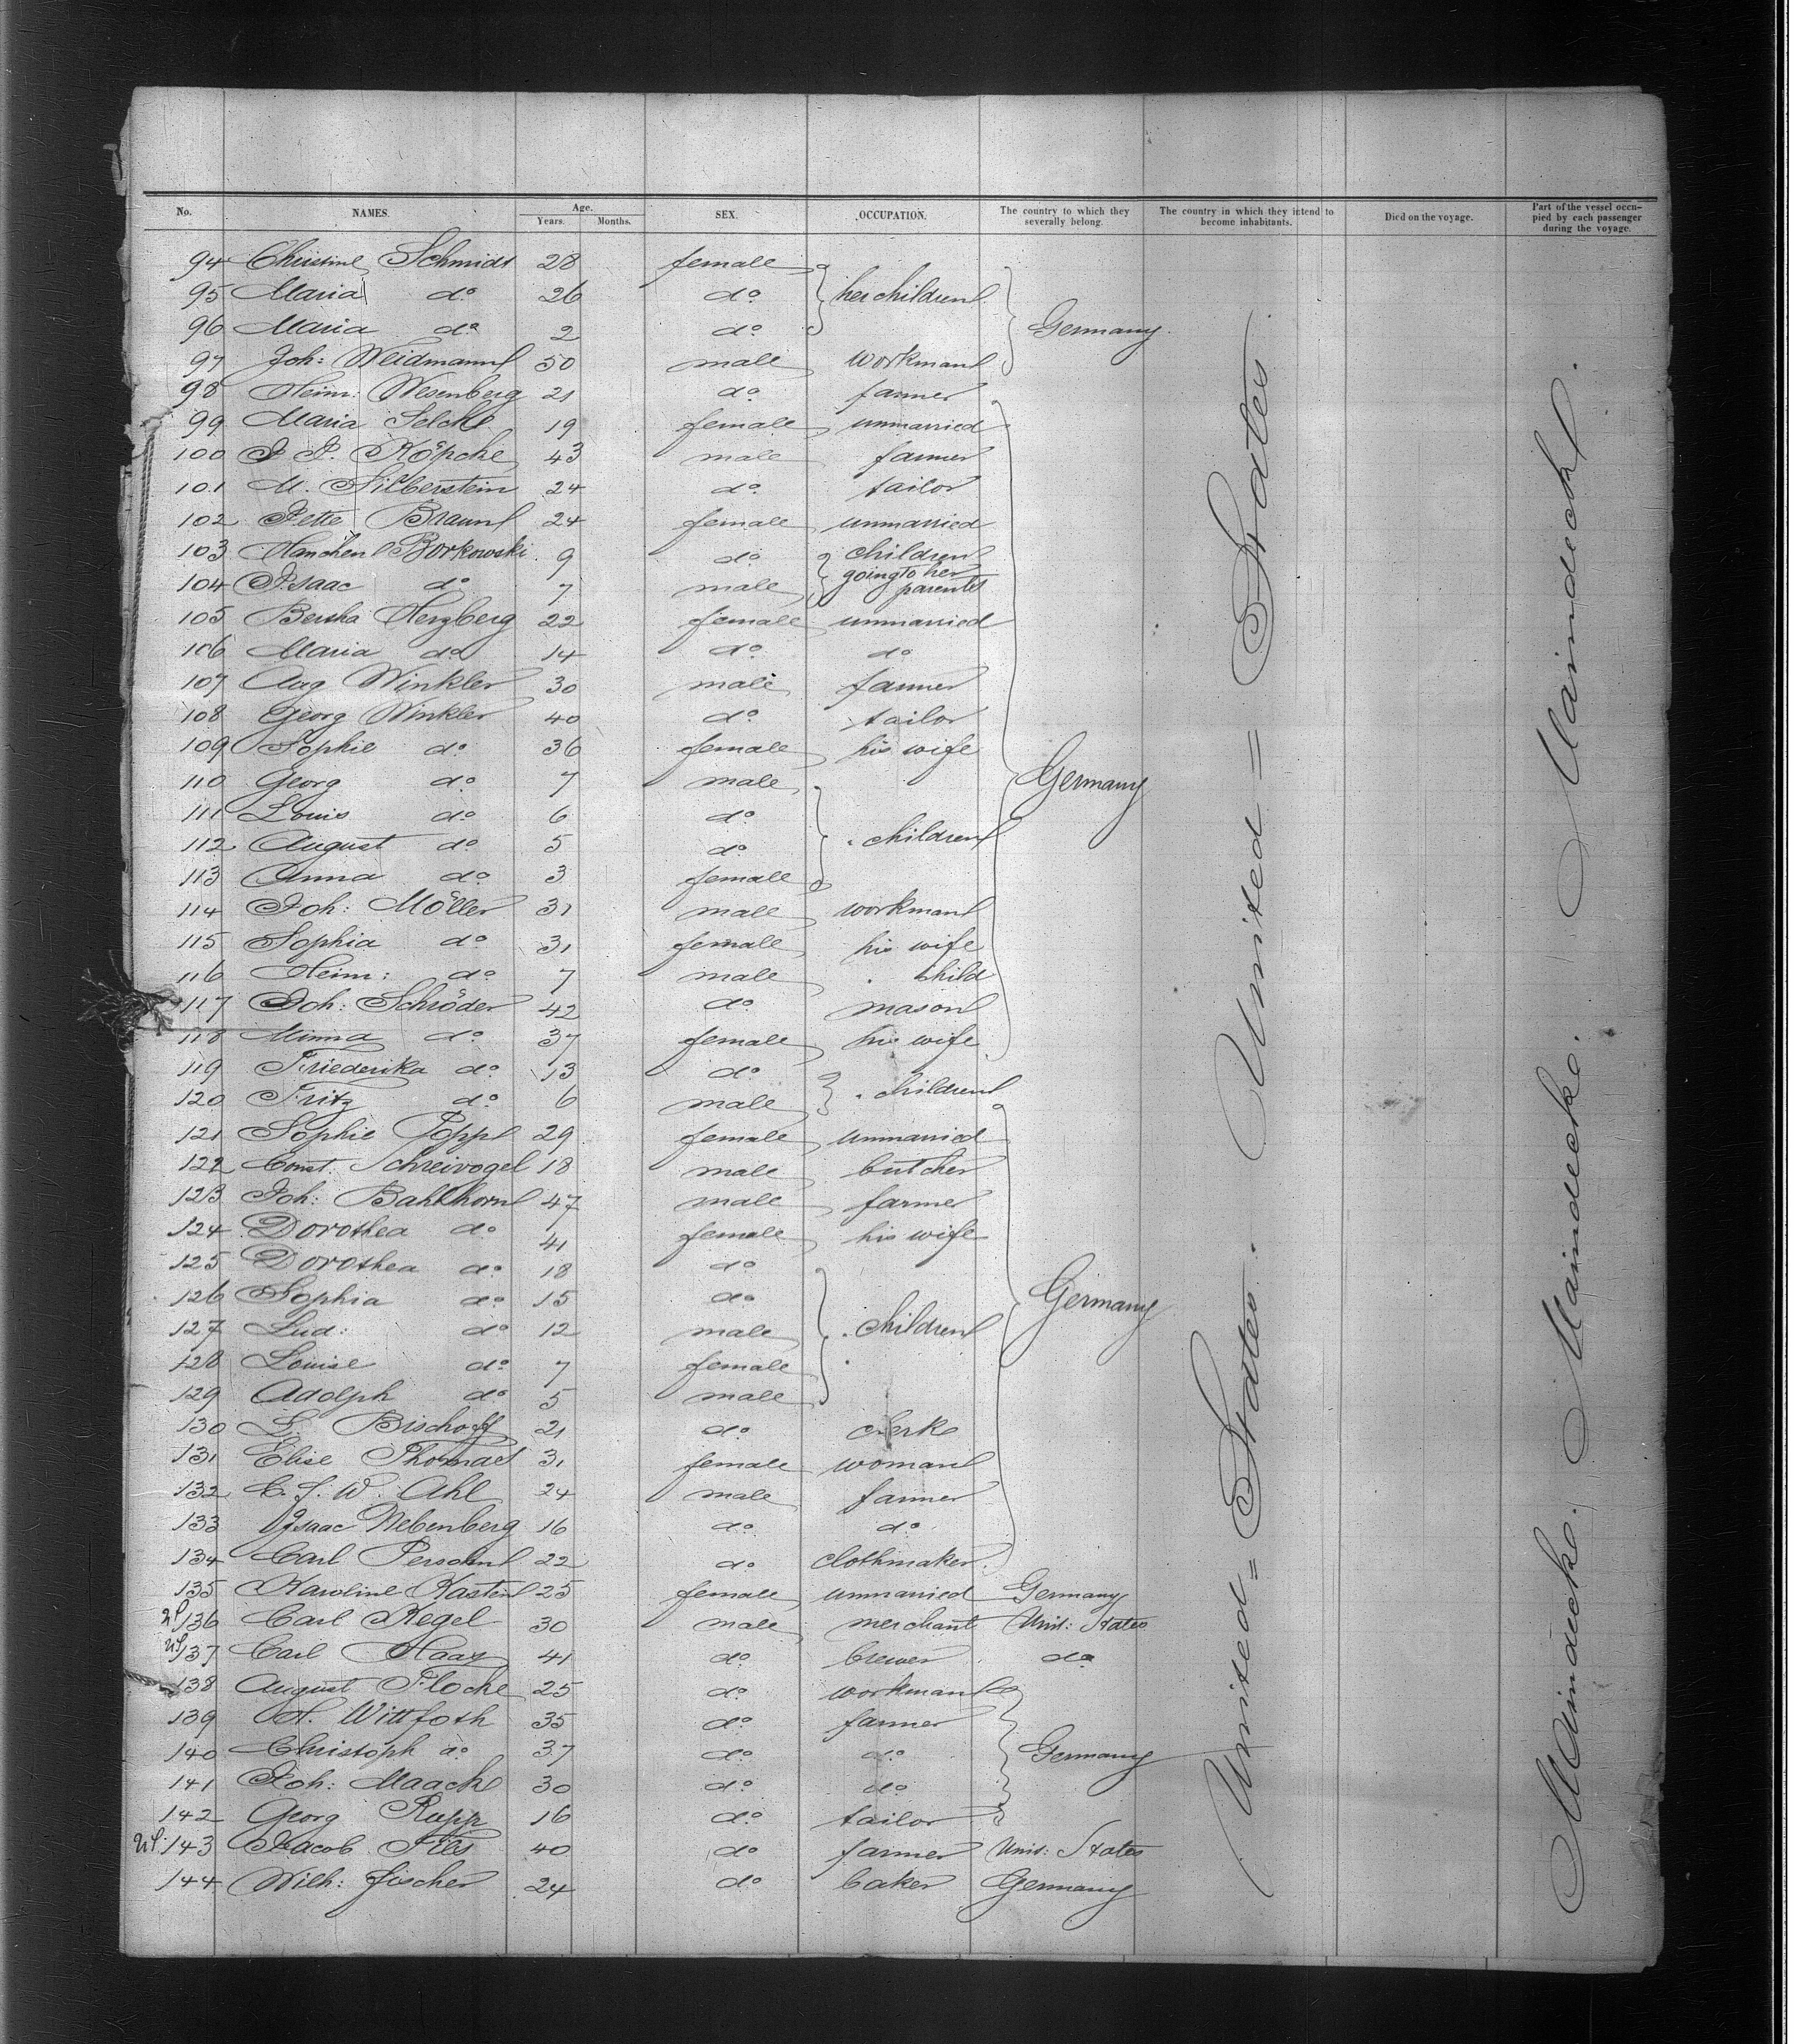 No. NAMES. Age. Years. Months. SEX. OCCUPATION. The country to which they severally belong. The country in which they intend to become inhabitants. Died on the voyage. Part of the vessel occupied by each passenger during the voyage.
94 Christine Schmidt 28 female
95 Maria do 26 do her children
96 Maria do 2 do Germany
97 Joh: Weidmann 50 male workman
98 Heinr: Wesenberg 21 do farmer
99 Maria Selcke 19 female unmarried
100 J. P. Köpche 43 male farmer
101 M. Silberstein 24 do tailor
102 Jette Braun 24 female unmarried
103 Hanchen Borkowski 9 do children
going to her
104 Isaac do 7 male parents
105 Bertha Herzberg 22 female unmarried
106 Maria do 14 do do
107 Aug Winkler 30 male farmer
108 Georg Winkler 40 do tailor
109 Sophie do 36 female his wife
110 Georg do 7 male Germany
111 Louis do 6 do
112 August do 5 do children
113 Anna do 3 female
114 Joh: Möller 31 male workman
115 Sophia do 31 female his wife
116 Heinr: do 7 male child
117 Joh: Schröder 42 do mason
118 Minna do 37 female his wife
119 Friederika do 13 do
120 Fritz do 6 male children
121 Sophie Poppe 29 female unmarried
122 Const. Schreivogel 18 male butcher
123 Joh: Bahlhorn 47 male farmer
124 Dorothea do 41 female his wife
125 Dorothea do 18 do
126 Sophia do 15 do Germany
127 Lud: do 12 male children
128 Louise do 7 female
129 Adolph do 5 male
130 L. Bischoff 21 do clerk
131 Elise Thomas 31 female woman
132 C. F. W. Ahl 24 male farmer
133 Isaac Nebenberg 16 do do
134 Carl Persohn 22 do clothmaker
135 Karoline Kasten 25 female unmarried Germany
US 136 Carl Kegel 30 male merchant Unit: States
US 137 Carl Haas 41 do brewer do
138 August Flocke 25 do workman
139 H. Wittfoth 35 do farmer
140 Christoph do 37 do do Germany
141 Joh: Maack 30 do do
142 Georg Rupp 16 do tailor
US 143 Jacob Fils 40 do farmer Unit: States
144 Wilh: Fischer 24 do baker Germany
United = States. United = States
Maindeck. Maindecke. Maindeck.